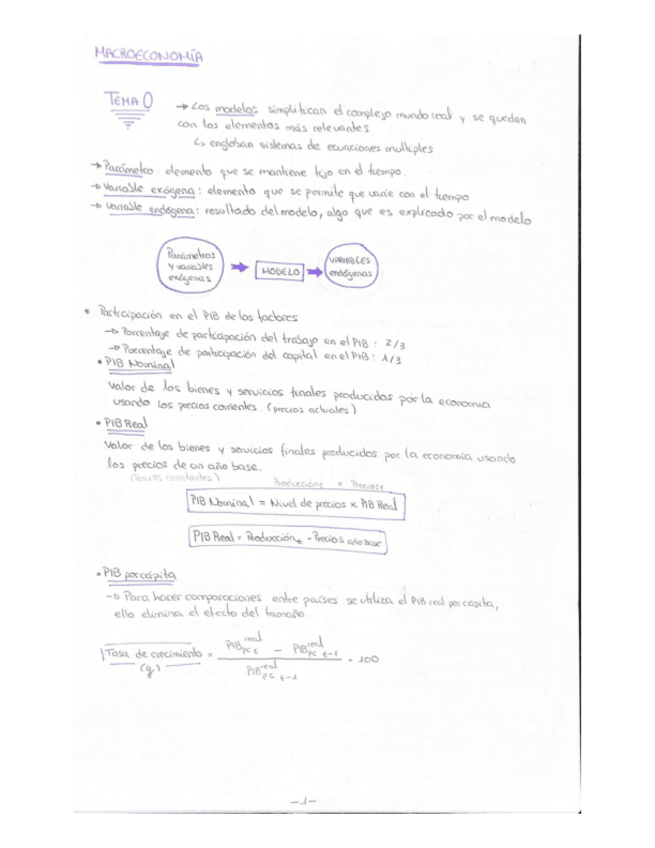 MACROECONOMÍA
TEMA 0
→ Los modelos simplifican el complejo mundo real y se quedan
con los elementos más relevantes
↳ engloban sistemas de ecuaciones multiples
→ Parámetro: elemento que se mantiene fijo en el tiempo.
→ Variable exógena: elemento que se permite que varíe con el tiempo
→ Variable endógena: resultado del modelo, algo que es explicado por el modelo
Parámetros
y variables
exógenas
→ MODELO →
VARIABLES
endógenas
* Participación en el PIB de los factores
→ Porcentaje de participación del trabajo en el PIB: 2/3
→ Porcentaje de participación del capital en el PIB: 1/3
• PIB Nominal
Valor de los bienes y servicios finales producidos por la economía
usando los precios corrientes. (precios actuales)
• PIB Real
Valor de los bienes y servicios finales producidos por la economía usando
los precios de un año base.
(Precios constantes)
Producción x Precios
PIB Nominal = Nivel de precios x PIB Real
PIB Real = Producción t · Precios año base
• PIB per cápita
→ Para hacer comparaciones entre países se utiliza el PIB real per cápita,
ello elimina el efecto del tamaño
Tasa de crecimiento = (PIB real pc t − PIB real pc t-1) / PIB real pc t-1 · 100
(g)
-1-